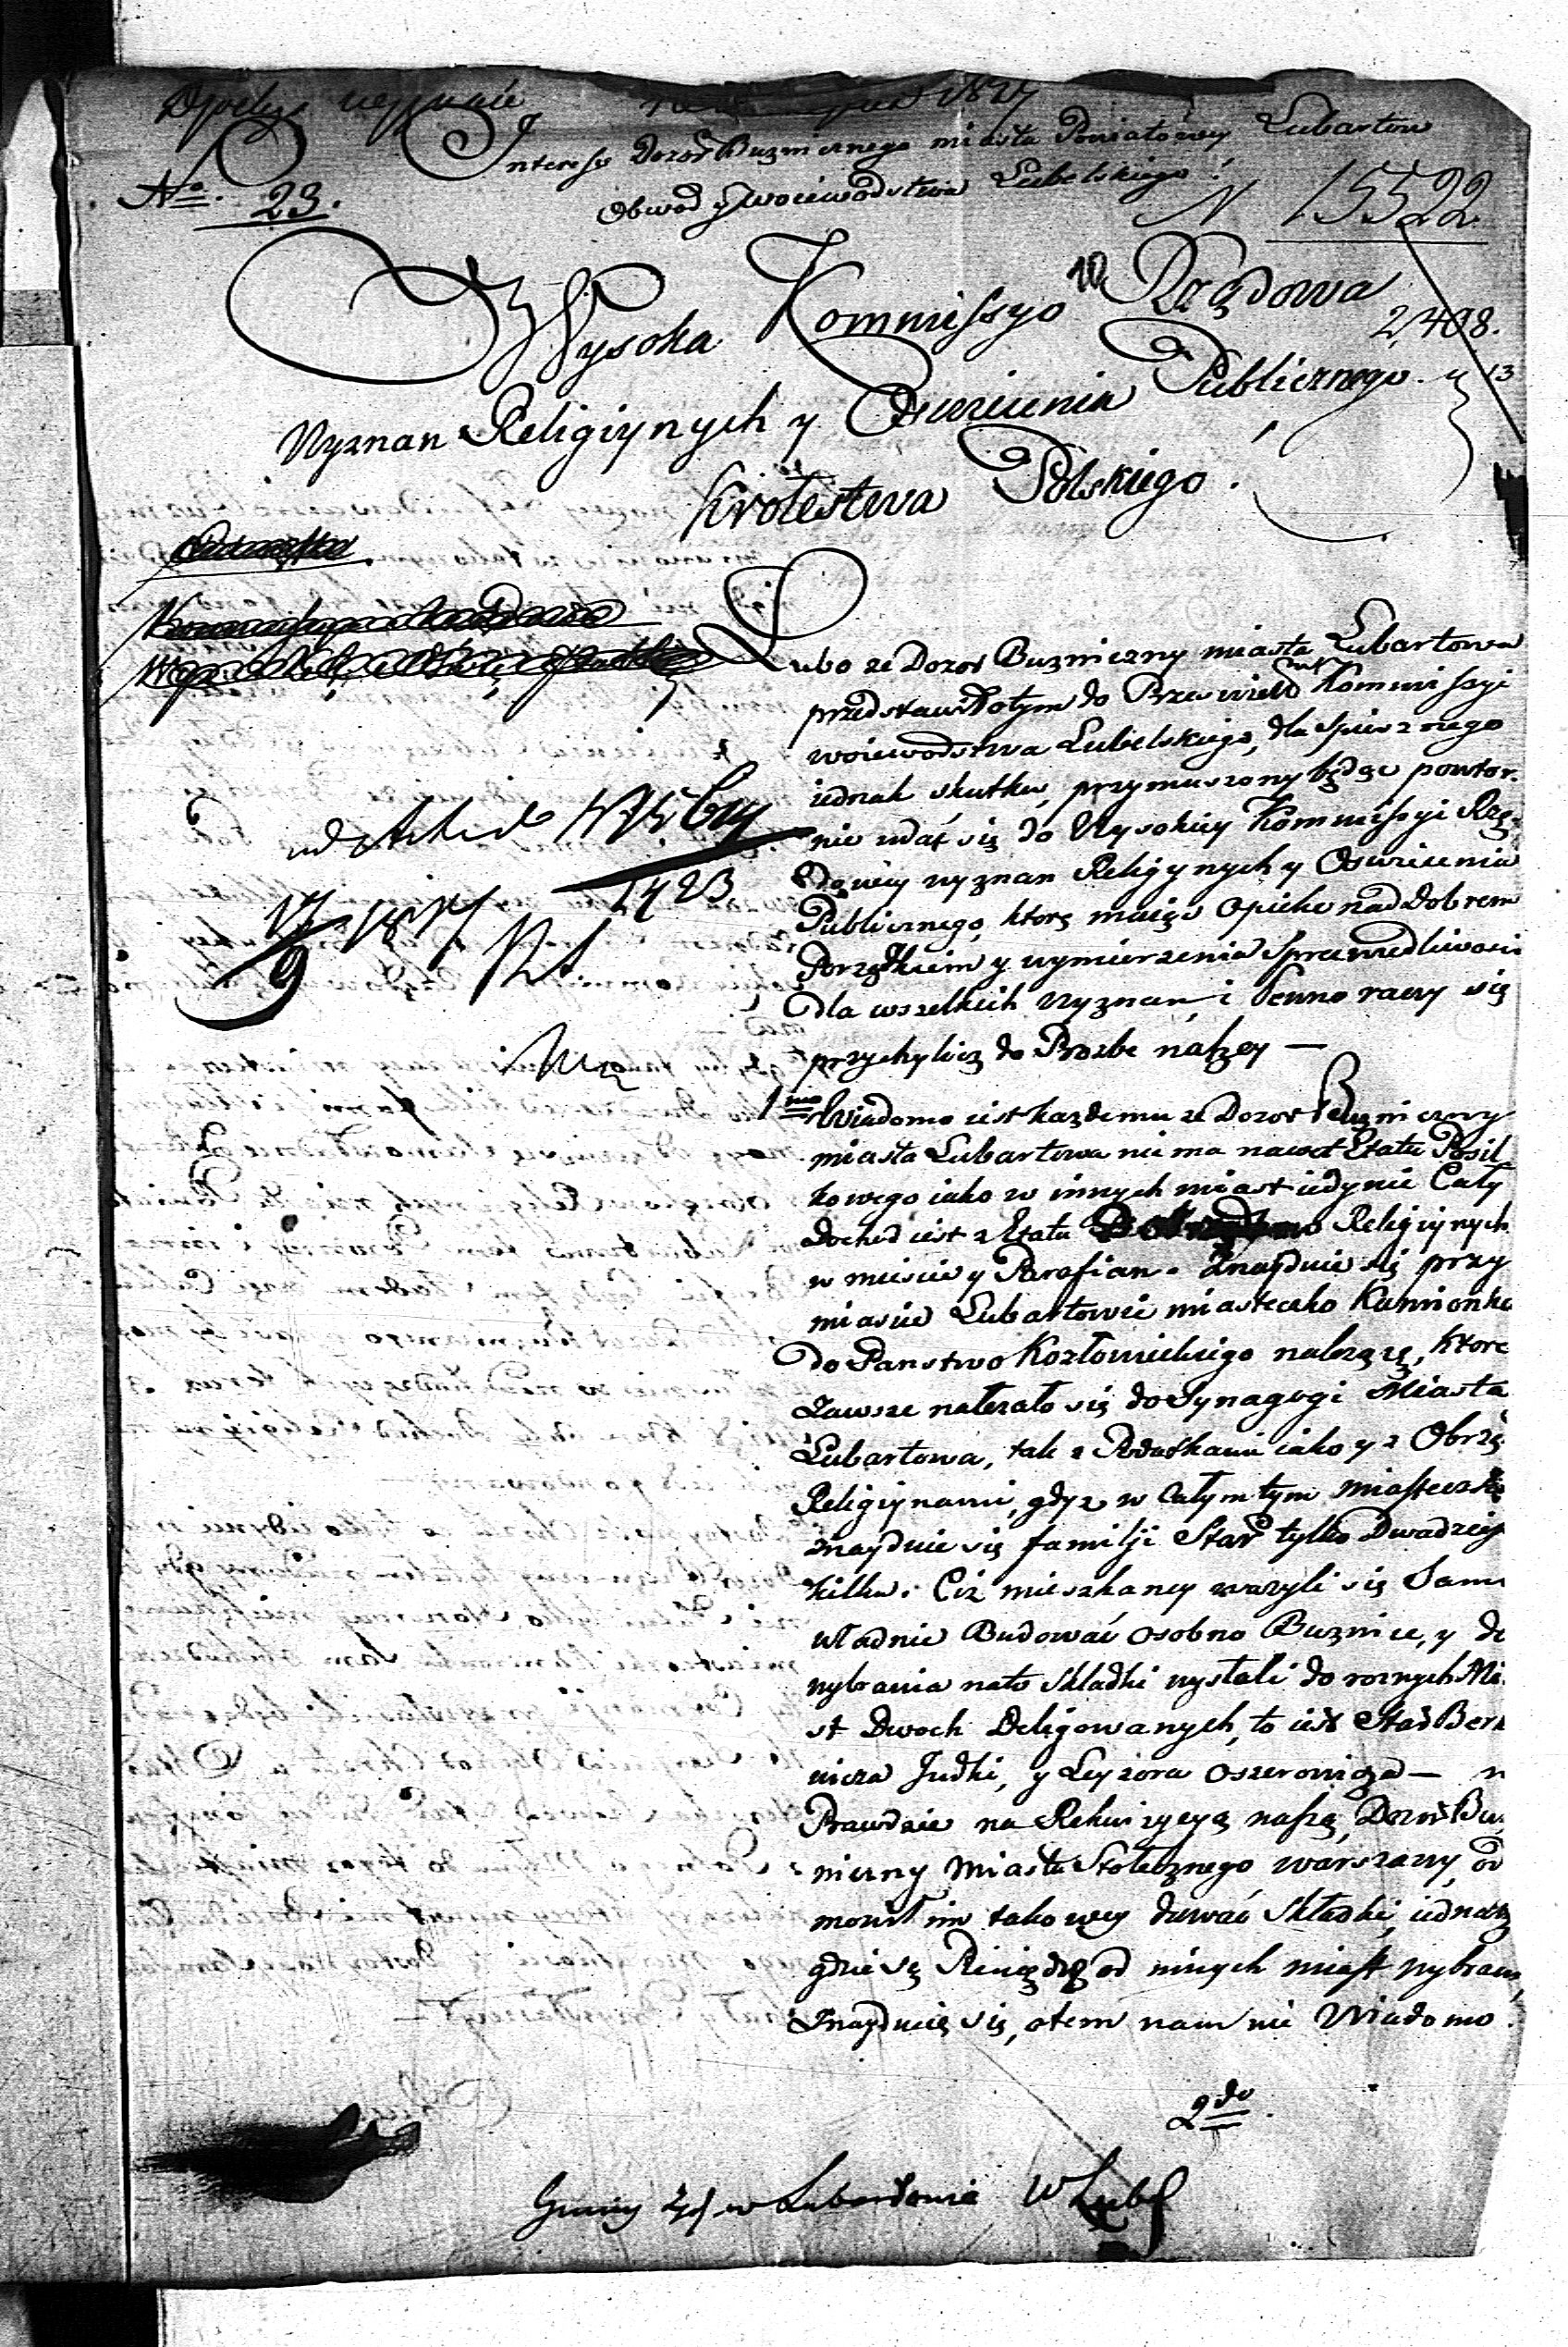 1827
Interess Dozoru Buznicznego miasta Powiatowey Lubartow
Obwod y Woiewodstwa Lubelskiego.
No. 23.
N 15522
2,408.
13
Wysoka Kommissyo Rządowa
Wyznan Religiynych y Oswiecenia Publicznego.
Krolestwa Polskiego.
Lubo ze Dozor Buzniczny miasta Lubartowa
przedstawił o tym do Przeswietney Kommissyi
woiewodstwa Lubelskiego, dla spiesznego
iednak skutku, przymuszony będąc powtor-
nie udać się do Wysokiey Kommissyi Rzą-
dowey wyznan Religiynych y Oswiecenia
Publicznego, ktorę maiąc opieke nad Dobrem
Porządkiem y wymierzenia Sprawiedliwosci
dla wszelkich Wyznan, i Pewno raczy się
przychylicz do Prozbe naszey —
1mo Wiadomo iest każdemu ze Dozor Buzniczny
miasta Lubartowa nie ma nawet Etatu Posił
kowego iako w innych miast iedynie Cały
dochod iest z Etatu Religiynych
w miescie y Parafian. Znayduie się przy
miascie Lubartowie miasteczko Kamionka
do Panstwo Kozłowieckiego nalezące, ktore
Zawsze nalezało się do Synagogi Miasta
Lubartowa, tak z Podatkami iako y z Obrzę
Religiynami, gdyz w całym tym miasteczku
znayduie się familji Star tylko Dwadziesc
kilku. Ciż mieszkancy wazyli się Samo
władnie Budować osobno Buznice, y do
wybrania nato składki wysłali do roznych Mi
st Dwoch Deligowanych, to iest Star Berk
wicza Judki, y Leyzora Oszerowicza —
Prawdzie na Rekwizycyą naszą, Dozor Bu
zniczny Miasta Stołecznego Warszawy, od
mowił im takowey dawać składki, iednak
gdzie są Pieniędze od innych miast wybrane,
Znayduię się, otem nam nie Wiadomo.
2do
1423
17
9
Gminy Żyd. w Lubartowie W Lub